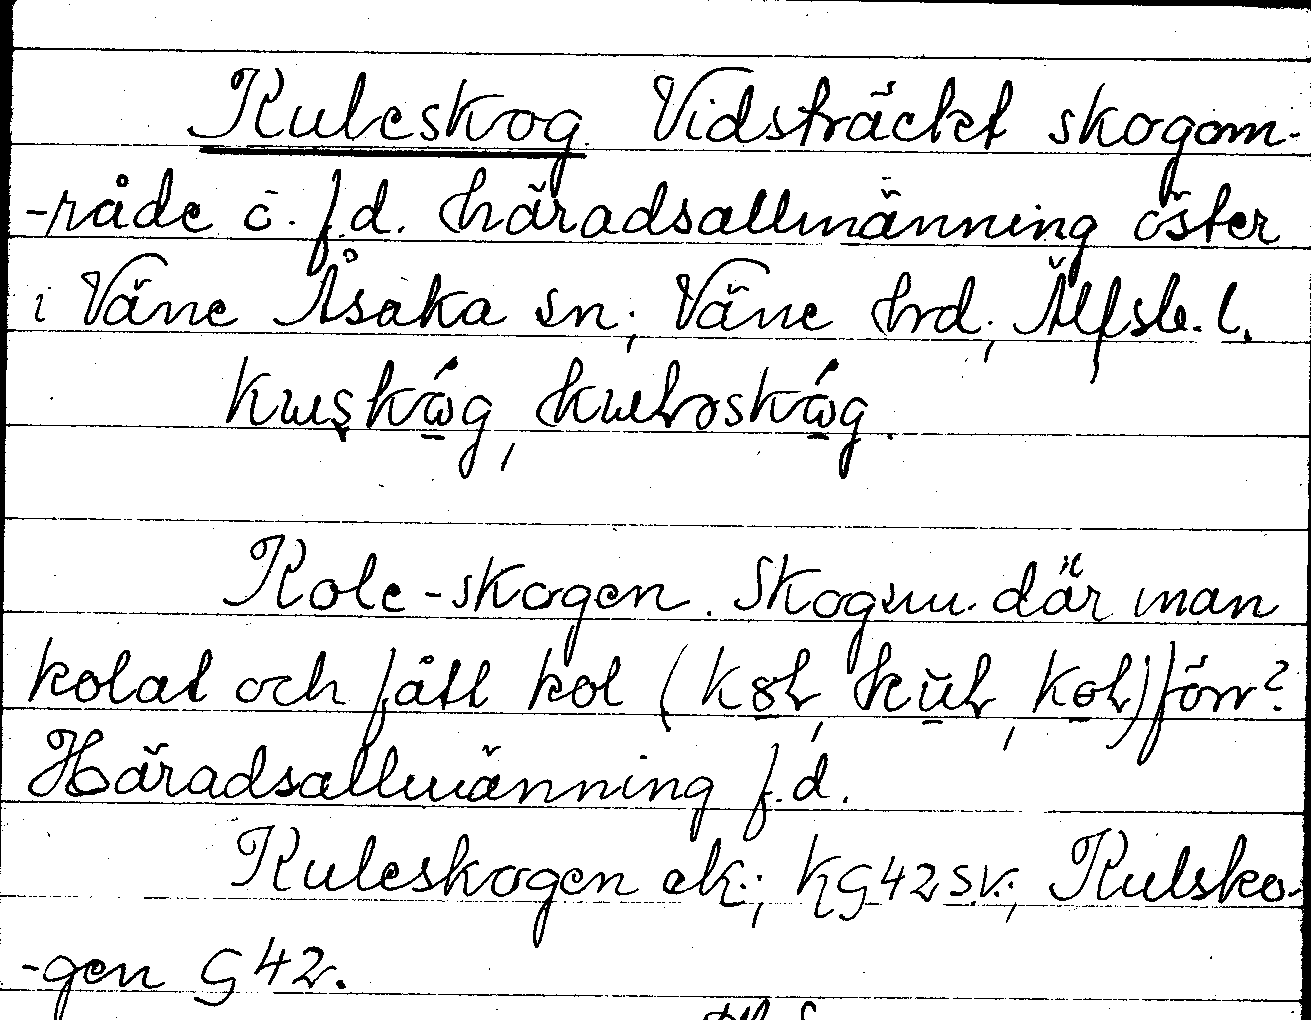 Kuleskog. Vidsträckt skogom-
-råde o. f.d. häradsallmänning öster
i Väne Åsaka sn; Väne hrd; Älfsb. l.
Kole-skogen. Skogen där man
kolat och fått kol förr?
Häradsallmänning f.d.
Kuleskogen ek.; KG42sv.; Kulsko-
-gen G42.